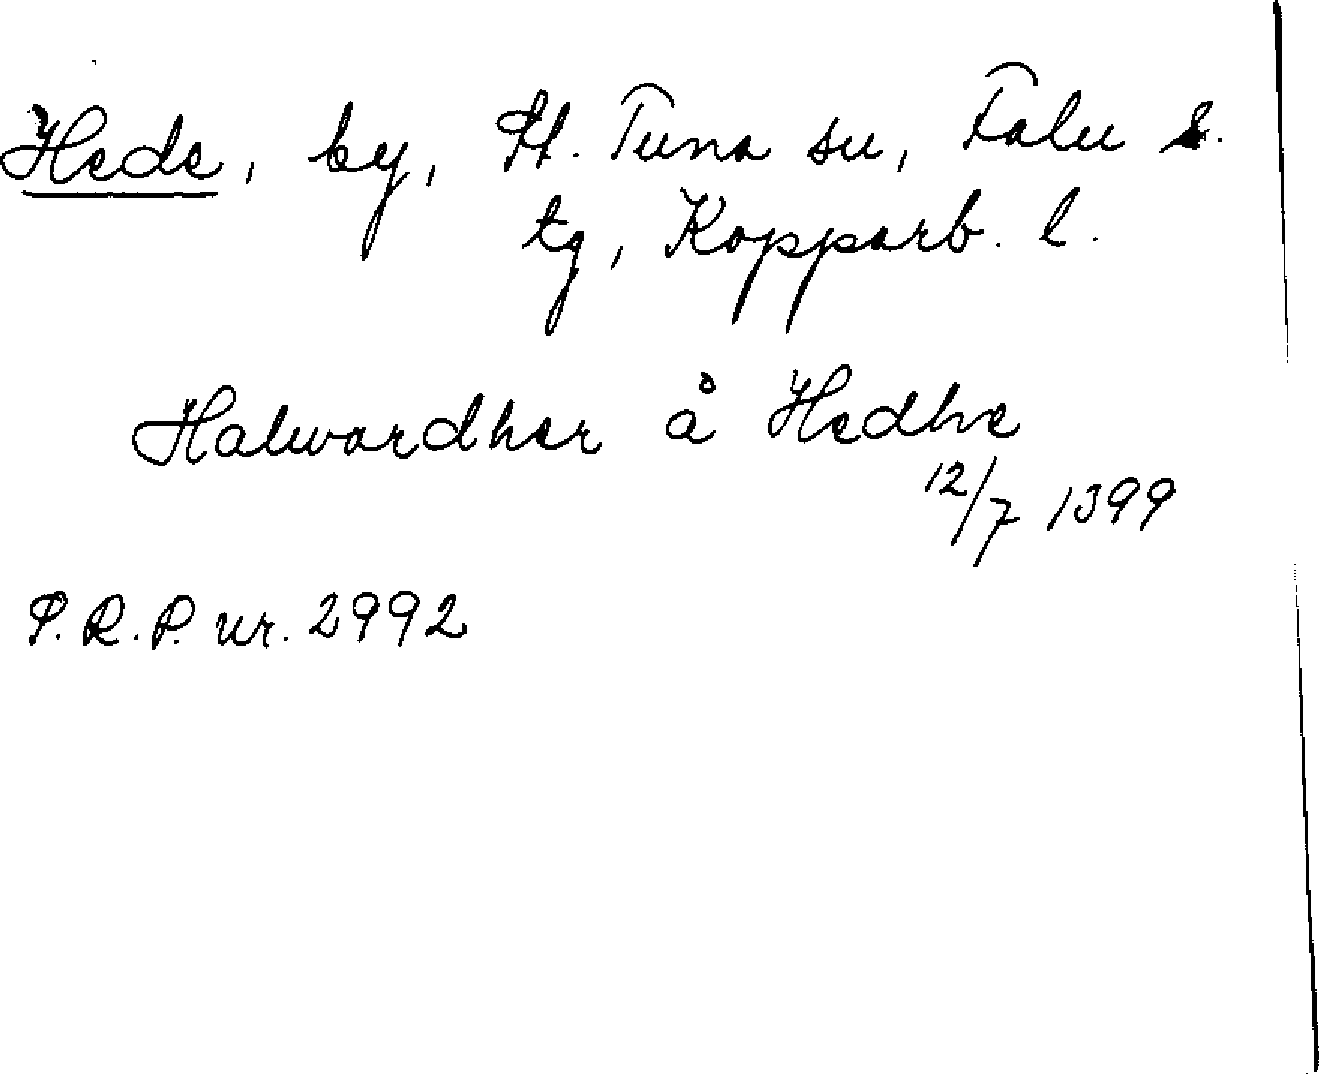 Hede, by, St. Tuna sn, Falu s.
tg, Kopparb. l.
Halwardher å Hedhe
12/7 1399
S.R.P. nr. 2992